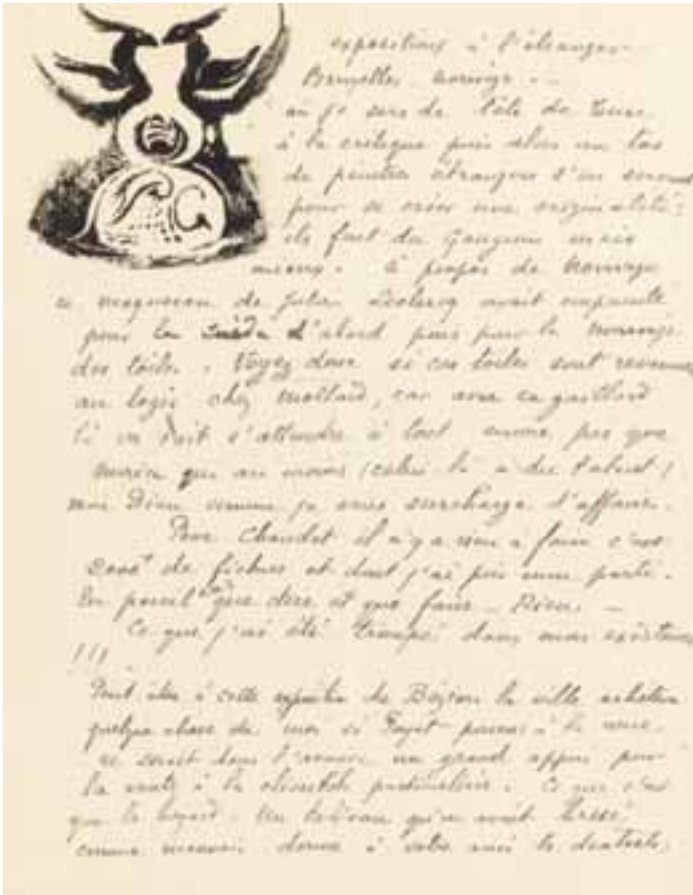 expositions à l'étranger
Bruxelles Norvège. –
on se sert de l'idée de
à la critique puis alors un tas
de peintres étrangers s'en servent
pour se créer une originalité:
ils font du Gauguin mais
mieux. à propos de Norvège
ce de Julien Leclercq avait emprunté
pour la Suède d'abord puis pour la Norvège
des toiles. Voyez donc si ces toiles sont revenues
au logis chez Mollard, car avec ce gaillard
là on doit s'attendre à tout encore pis que
Morice qui au moins (celui là a du talent)
mon Dieu comme je vous surcharge d'affaires.
Pour Chaudet il n'y a rien à faire c'est
de fichus et dont j'ai pris mon parti.
En pareil cas que dire et que faire – Rien –
Ce que j'ai été trompé dans mon existence
!!!
Peut être à cette exposition de Béziers la ville achètera
quelque chose de moi si Fayet pousse à la roue.
ce serait dans l'avenir un grand appui pour
la vente à la clientèle particulière. Ce que c'est
que le hasard. Un tableau qu'on avait
comme mauvais donné à votre ami le dentiste,